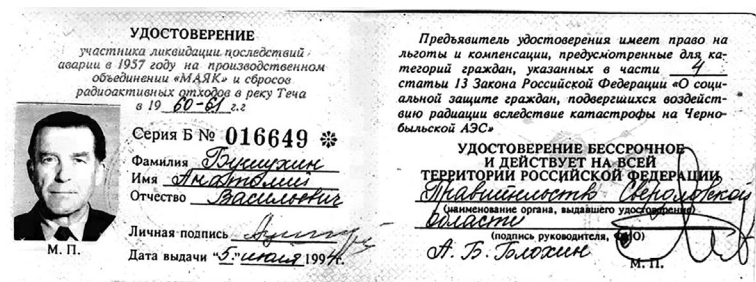 УДОСТОВЕРЕНИЕ
участника ликвидации последствий
аварии в 1957 году на производственном
объединении «МАЯК» и сбросов
радиоактивных отходов в реку Теча
в 19 60-61 г.г
Серия Б № 016649
Фамилия
Имя Анатолий
Отчество Васильевич
Личная подпись
Дата выдачи "5" июля 1994 г.
М. П.
Предъявитель удостоверения имеет право на
льготы и компенсации, предусмотренные для ка-
тегорий граждан, указанных в части 4
статьи 13 Закона Российской Федерации «О соци-
альной защите граждан, подвергшихся воздейст-
вию радиации вследствие катастрофы на Черно-
быльской АЭС»
УДОСТОВЕРЕНИЕ БЕССРОЧНОЕ
И ДЕЙСТВУЕТ НА ВСЕЙ
ТЕРРИТОРИИ РОССИЙСКОЙ ФЕДЕРАЦИИ
Правительство Свердловской
(наименование органа, выдавшего удостоверение)
области
(подпись руководителя,
А. Б. Блохин
М. П.